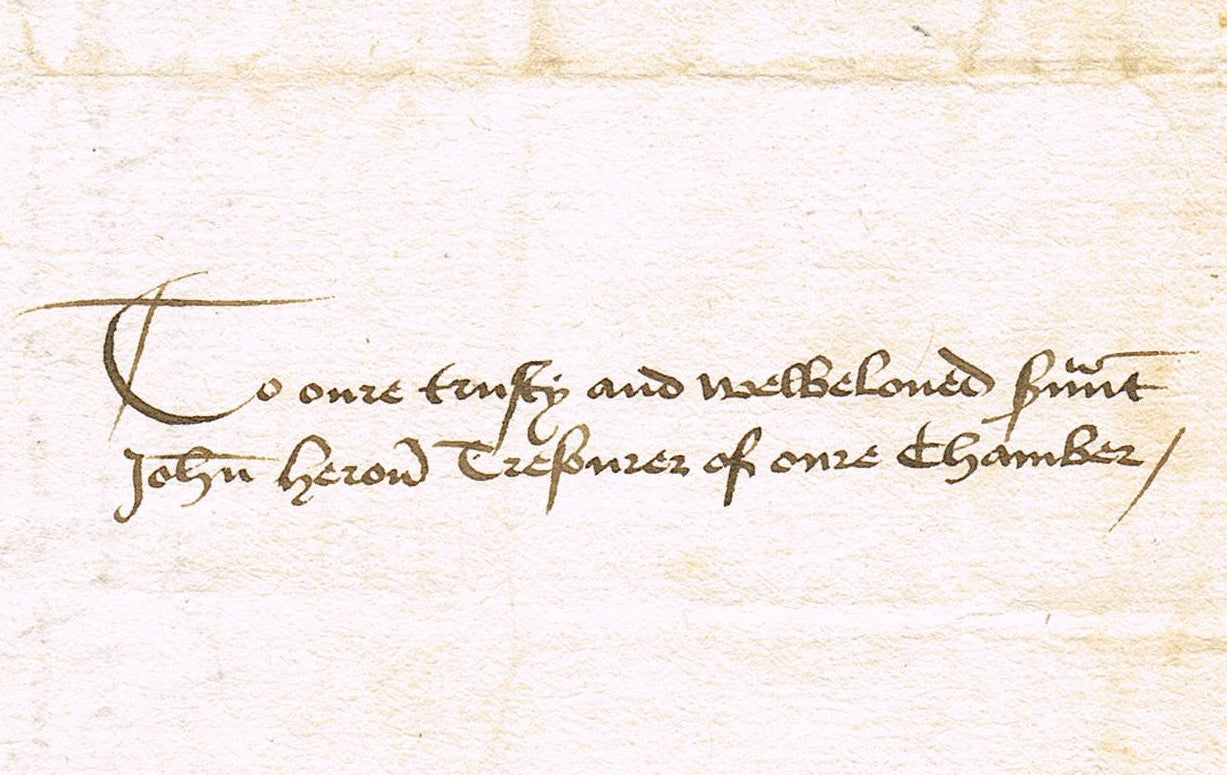 To oure trusty and welbeloued s'uūnt
Joħn heron Tresourer of oure Chamber /